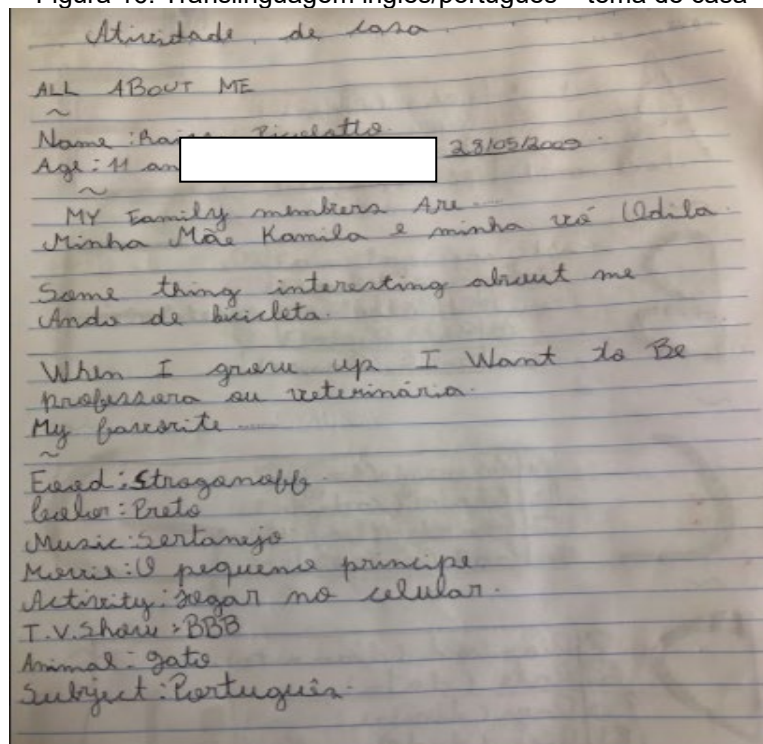 Figura 10: Translinguagem inglês/português – tema de casa
Atividade de casa
ALL ABOUT ME
~
Name:
Age: 11 28/05/2009
~
MY Family members Are....
Minha Mãe Kamila e minha vó Odila.
Some thing interesting about me
Ando de bicicleta.
When I grow up I Want to Be
professora ou veterinária.
My favorite .....
~
Food: Stroganoff.
Color: Preto
Music: Sertanejo
Movie: O pequeno principe.
Activity: Jogar no celular.
T.V. Show: BBB
Animal: gato
Subject: Português.